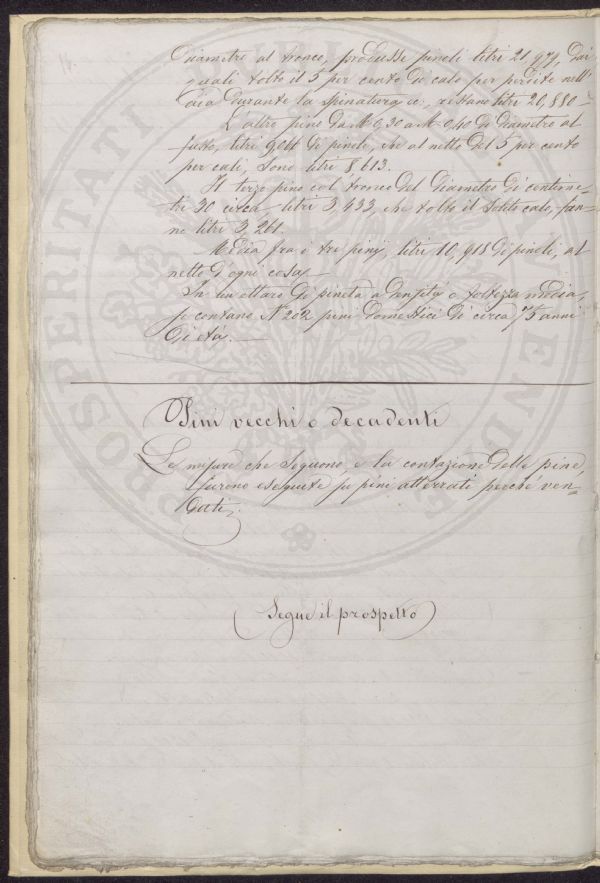 Diametro al tronco, produsse pinoli litri 21,979, dai
quali tolto il 5 per cento di calo per perdite nell'
aia durante la spinatura ec., restano litri 20,880
L'altro pino da M 0,30 a M 0,40 di diametro al
fusto, litri 9,011 di pinoli, che al netto del 5 per cento
per cali, sono litri 8,613.
Il terzo pino col tronco del diametro di centime-
tri 30 circa litri 3,433, che tolto il solito calo, fan-
no litri 3,261.
Media fra i tre pini, litri 10,918 di pinoli, al
netto d'ogni cosa
In un ettaro di pineta a densità o foltezza media,
se contano N° 202 pini domestici di circa 75 anni
di età.
Pini vecchi e decadenti
Le misure che seguono, e la contazione delle pine,
furono eseguite su pini atterrati perché ven-
duti.
Segue il prospetto
PROSPERITATI